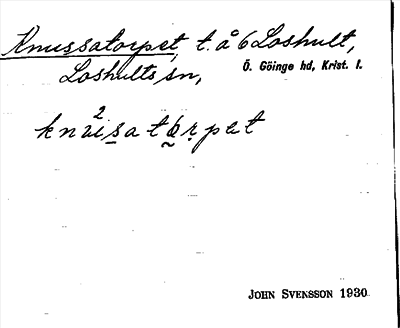 Knussatorpet, t. å 6 Loshult,
Loshults sn, Ö. Göinge hd, Krist. l.
JOHN SVENSSON 1930